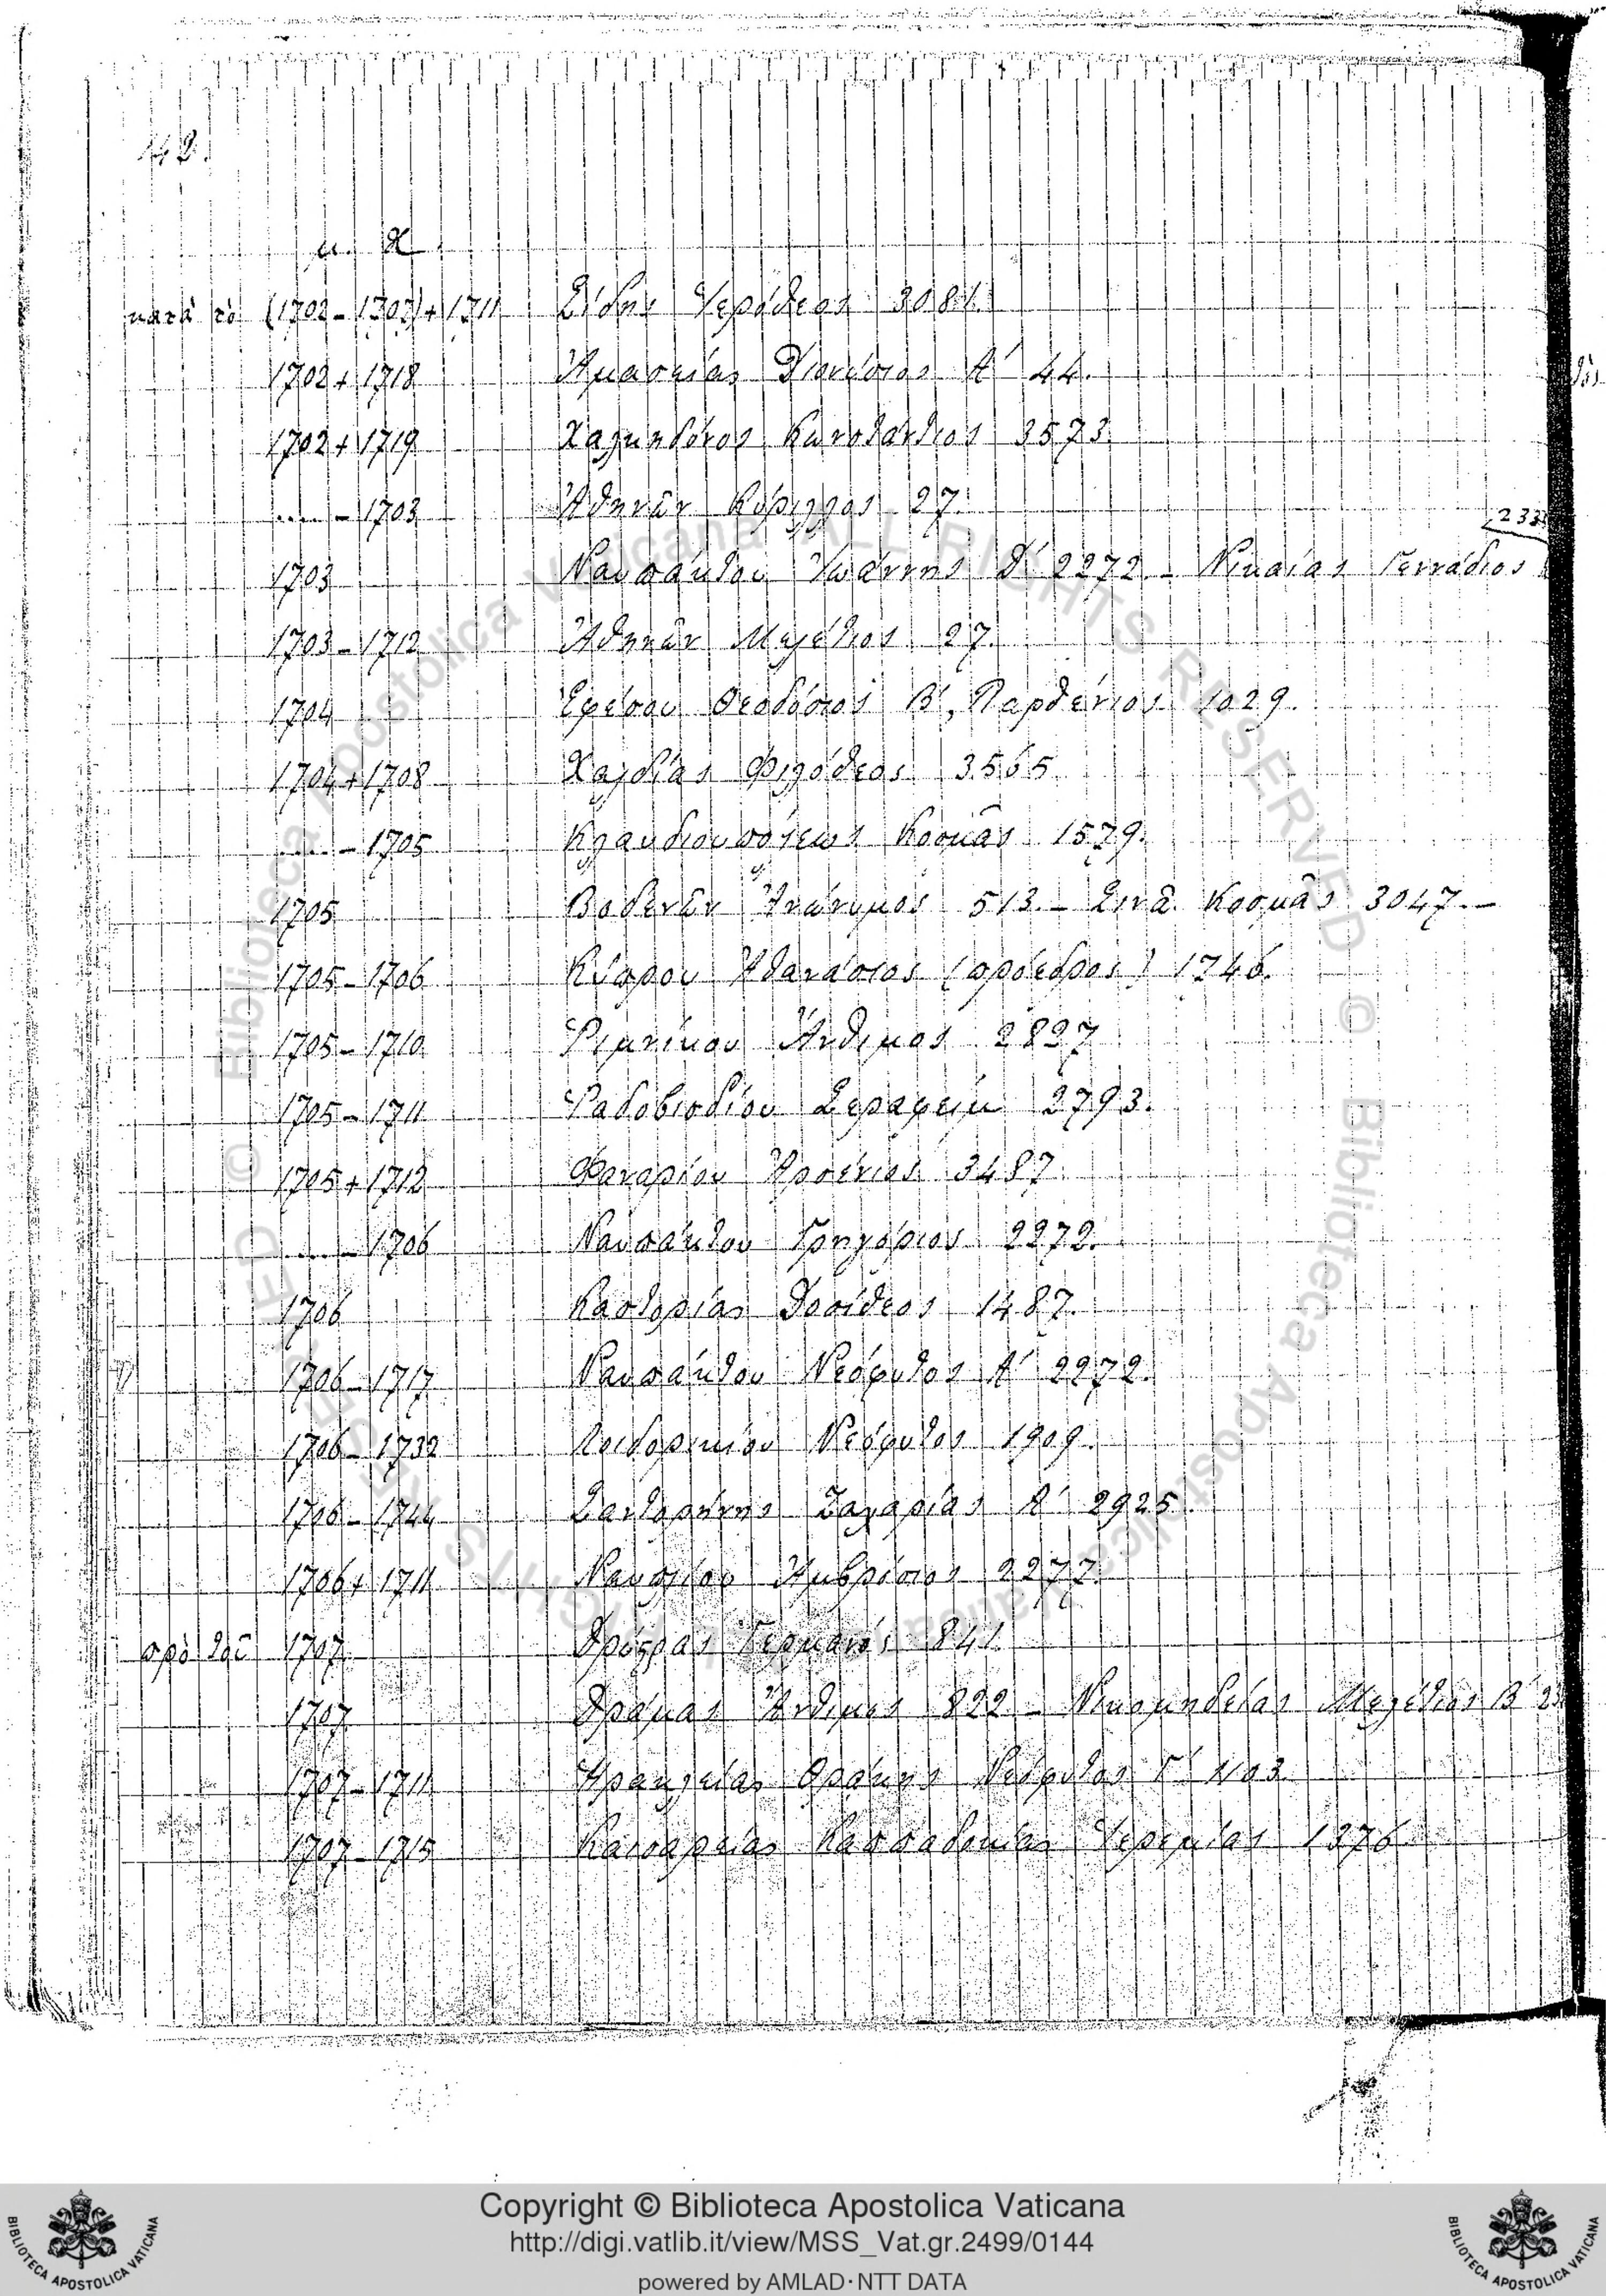 μ. Χ.
κατὰ τὸ (1702-1703)+1711 Σίδης Ἱερόθεος 3081.
1702+1718 Ἀμασείας Διονύσιος Α΄ 44.
1702+1719 Χαλκηδόνος Κωνστάντιος 3573.
....-1703 Ἀθηνῶν Κύριλλος 27.
233
1703 Ναυπάκτου Ἰωάννης Δ΄ 2272.- Νικαίας Γεννάδιος
1703-1712 Ἀθηνῶν Μελέτιος 27.
1704 Ἐφέσου Θεοδόσιος Β΄, Παρθένιος 1029.
1704+1708 Χαλδίας Φιλόθεος 3565
....-1705 Κλαυδιουπόλεως Κοσμᾶς 1579.
1705 Βοδενῶν Ἀνώνυμος 513.- Σινᾶ Κοσμᾶς 3047.-
1705-1706 Κύπρου Ἀθανάσιος (πρόεδρος) 1746.
1705-1710 Ῥιμνίκου Ἄνθιμος 2827
1705-1711 Ῥαδοβισδίου Σεραφείμ 2793.
1705+1712 Φαναρίου Ἀρσένιος 3487.
....-1706 Ναυπάκτου Γρηγόριος 2272.
1706 Καστορίας Δοσίθεος 1487.
1706-1717 Ναυπάκτου Νεόφυτος Α΄ 2272.
1706-1732 Νεόφυτος 1909.
1706-1744 Σαντορήνης Ζαχαρίας Α΄ 2925.
1706+1711 Ναυπλίου Ἀμβρόσιος 2277.
πρὸ τοῦ 1707 Δρύστρας Γερμανός 841.
1707 Δράμας Ἄνθιμος 822 - Νικομηδείας Μελέτιος Β΄
1707-1711 Ἡρακλείας Θρᾴκης Νεόφυτος Γ΄ 1103
1707-1715 Καισαρείας Καππαδοκίας Ἱερεμίας 1376
© Biblioteca Apostolica Vaticana ALL RIGHTS RESERVED
Copyright © Biblioteca Apostolica Vaticana
http://digi.vatlib.it/view/MSS_Vat.gr.2499/0144
powered by AMLAD·NTT DATA
BIBLIOTECA APOSTOLICA VATICANA
BIBLIOTECA APOSTOLICA VATICANA